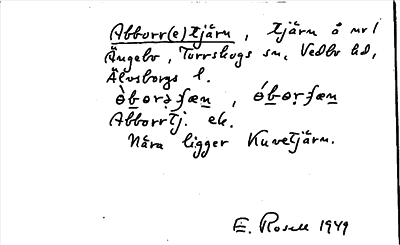 Abborr(e)tjärn, tjärn å nr 1
Ängebo, Torrskogs sn, Vedbo hd,
Älvsborgs l.
òbor̥ə ʃæn, óbor̥ ʃæn
Abborrtj. ek.
Nära ligger Kuvetjärn.
E. Rosell 1949